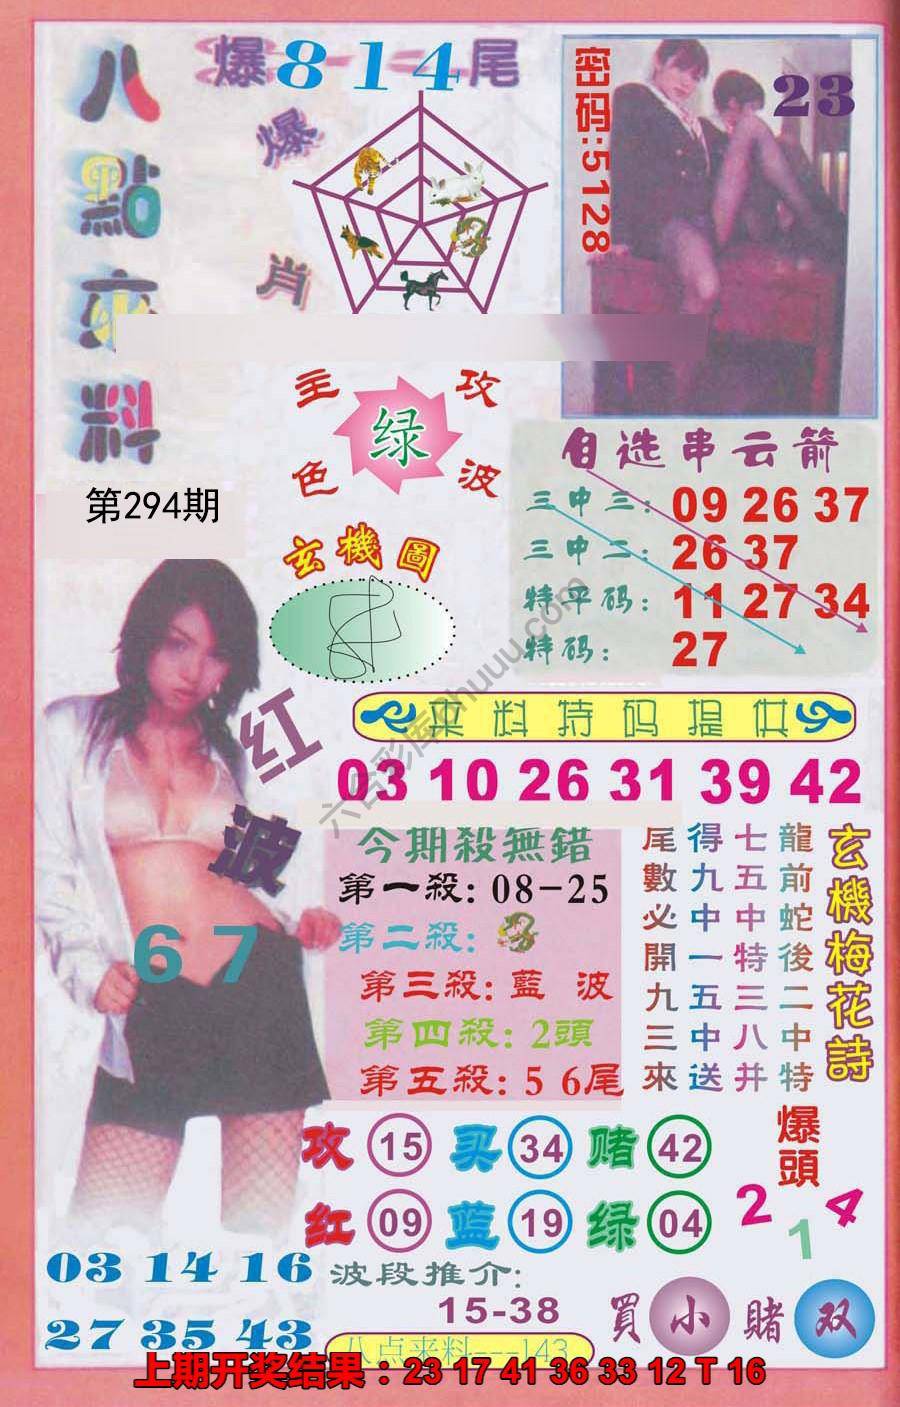 八點來料
爆814尾
爆肖
密码:5128
23
主色
绿
攻波
第294期
玄機圖
自选串云箭
三中三: 09 26 37
三中二: 26 37
特平码: 11 27 34
特码: 27
六合彩库qhuuu.com
红波
67
来料特码提供
03 10 26 31 39 42
今期殺無錯
第一殺: 08-25
第二殺:
第三殺: 藍波
第四殺: 2頭
第五殺: 5 6尾
玄機梅花詩
龍前蛇後二中特
七五中特三八并
得九中一五中送
尾數必開九三來
攻 15 买 34 赌 42
红 09 蓝 19 绿 04
爆頭
2 1 4
03 14 16
27 35 43
波段推介:
15-38
買小賭双
八点来料---143
上期开奖结果：23 17 41 36 33 12 T 16